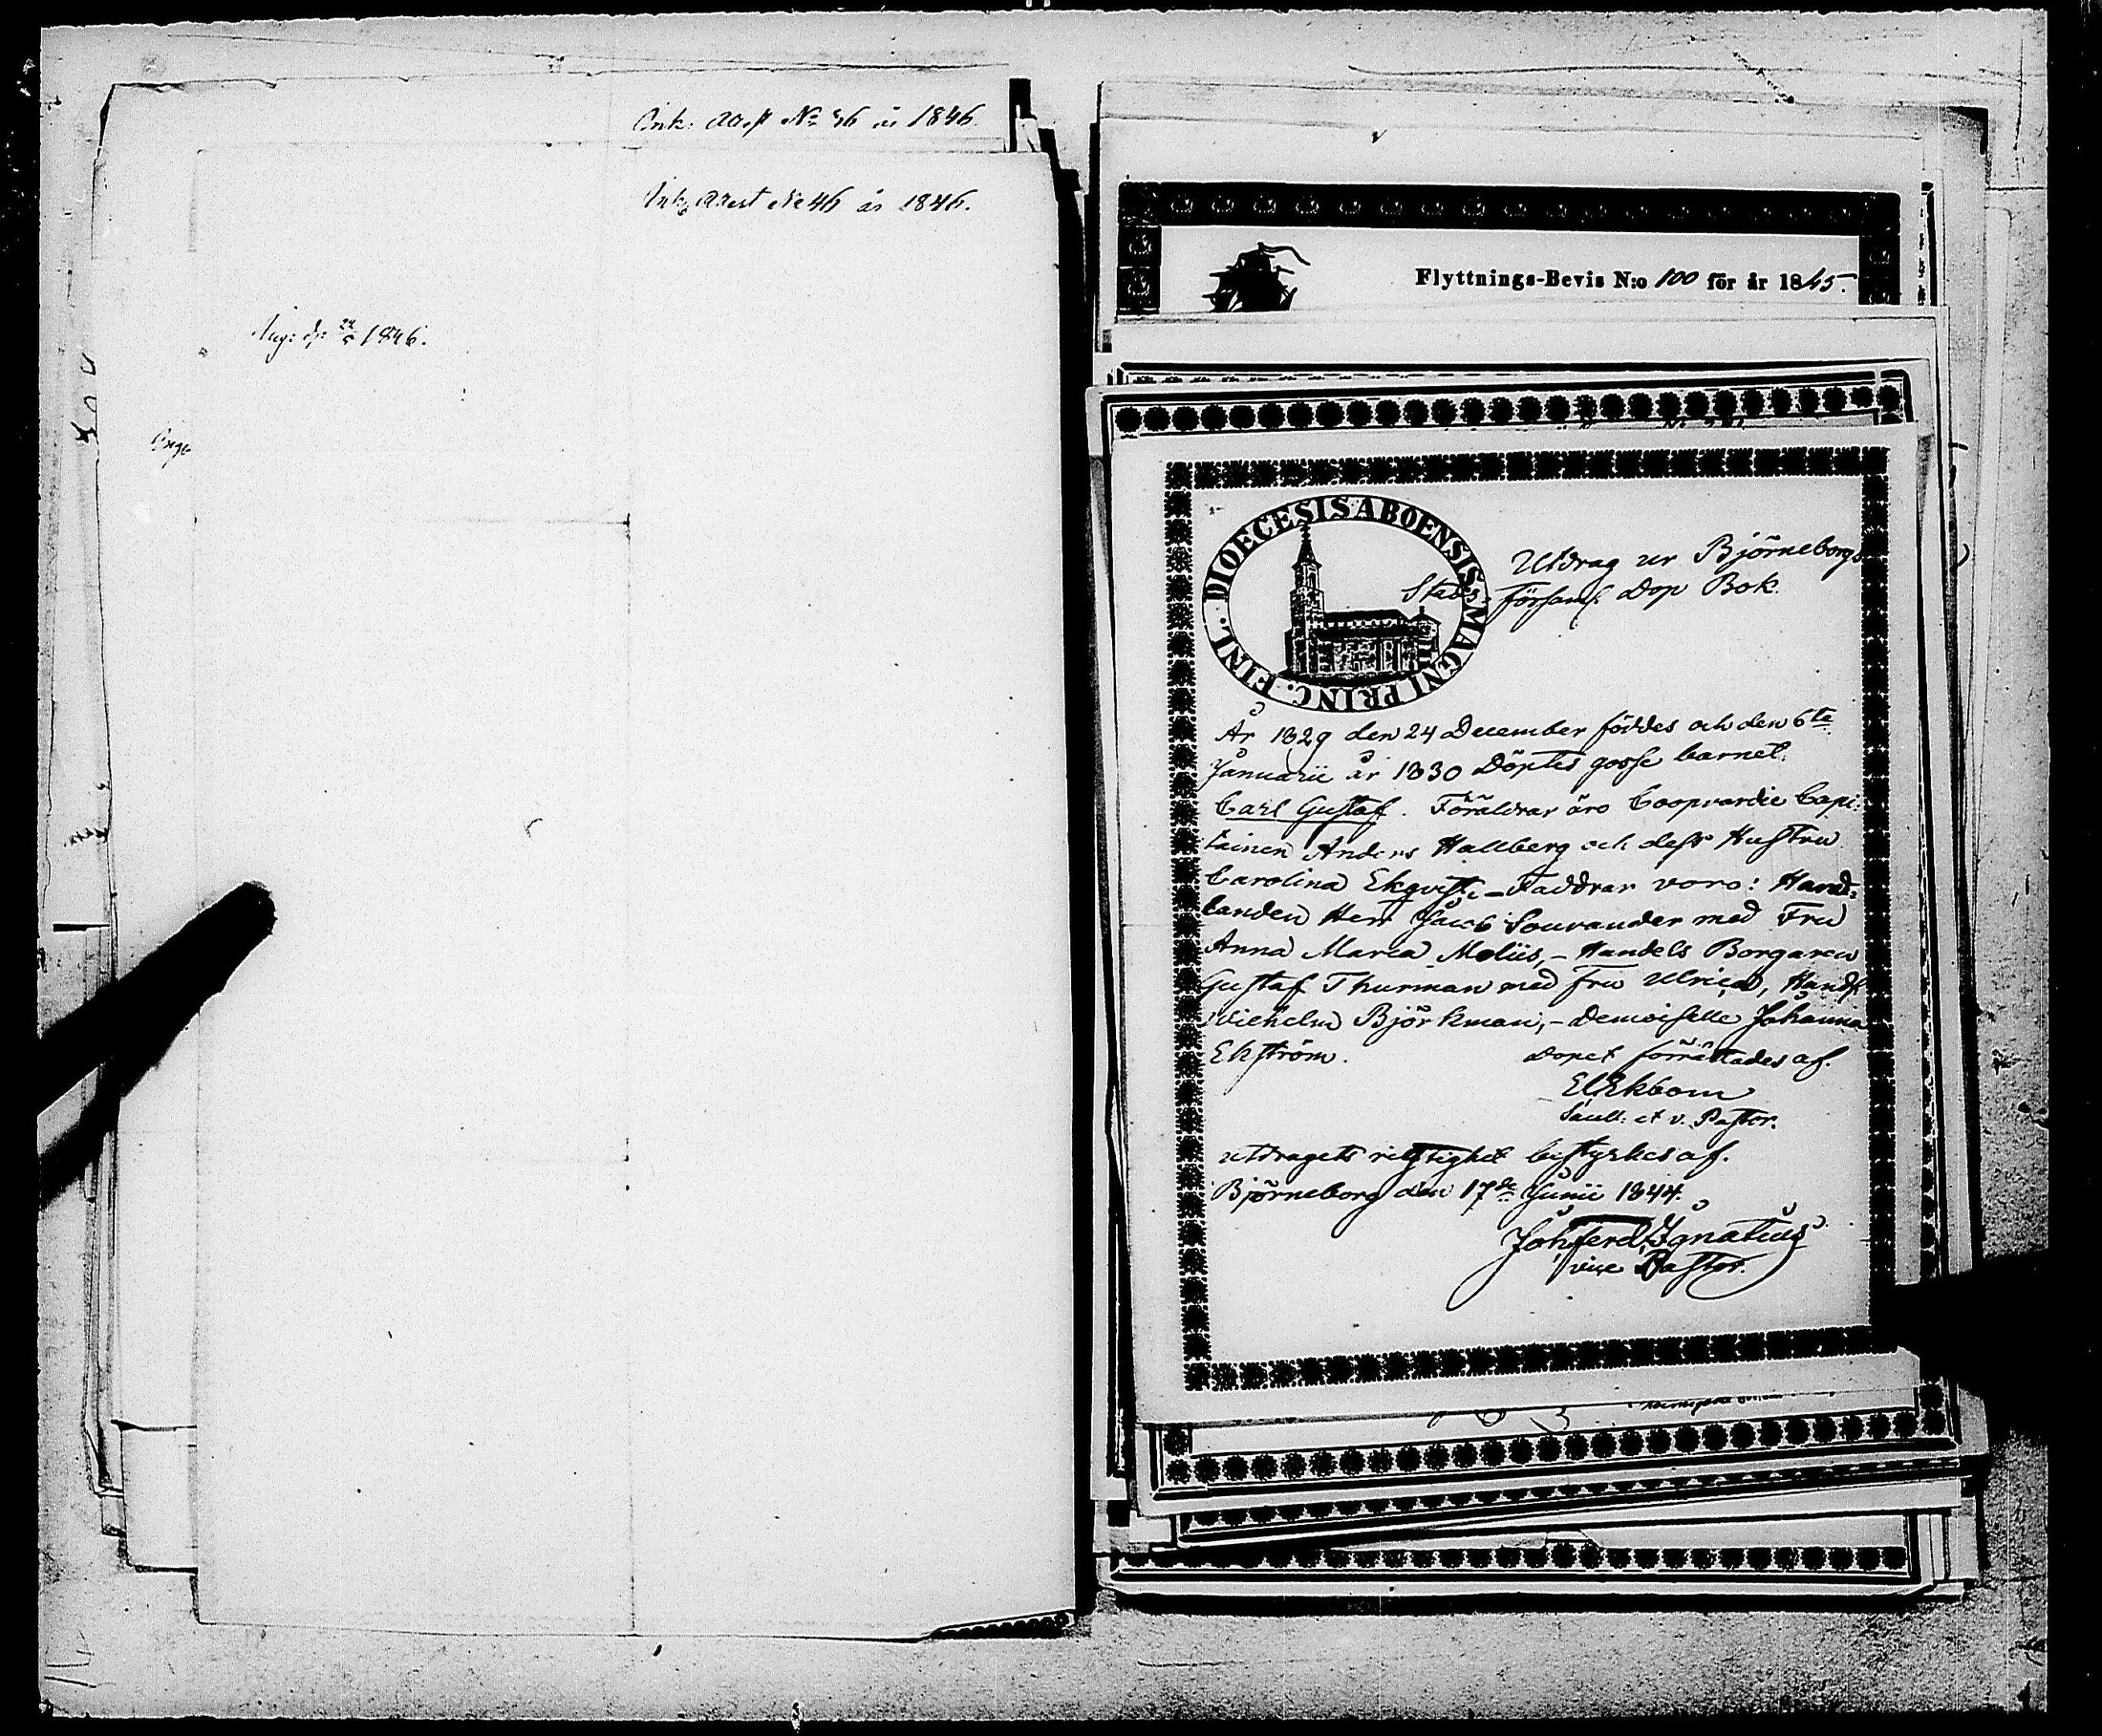 Ink: attest No 36 år 1846.
Ink: attest No 46 år 1846.
1846.
Flyttnings-Bevis N:o 100 för år 1845.
DIOECESIS ABOENSIS MAGNI PRINC. FINL.
Utdrag ur Björneborgs
Stads-Församl. Dop Bok.
År 1829 den 24 December föddes och den 6te
Januarii år 1830 Döptes gosse barnet.
Carl Gustaf. Föräldrar äro Coopvardie Capi-
tainen Anders Hallberg och dess Hustru
Carolina Ekqvist. – Faddrar voro: Hand-
landen Herr Jacob Sourander med Fru
Anna Maria Moliis, – Handels Borgaren
Gustaf Thurman med Fru Ulrica, Handl.
Wilhelm Björkman, – Demoiselle Johanna
Ekström. Dopet förrättades af.
Ekbom
Sacell: et v. Pastor.
utdragets rigtighet bestyrkes af.
Björneborg den 17de Junii 1844.
Joh Ferd Ignatius
vice Pastor.